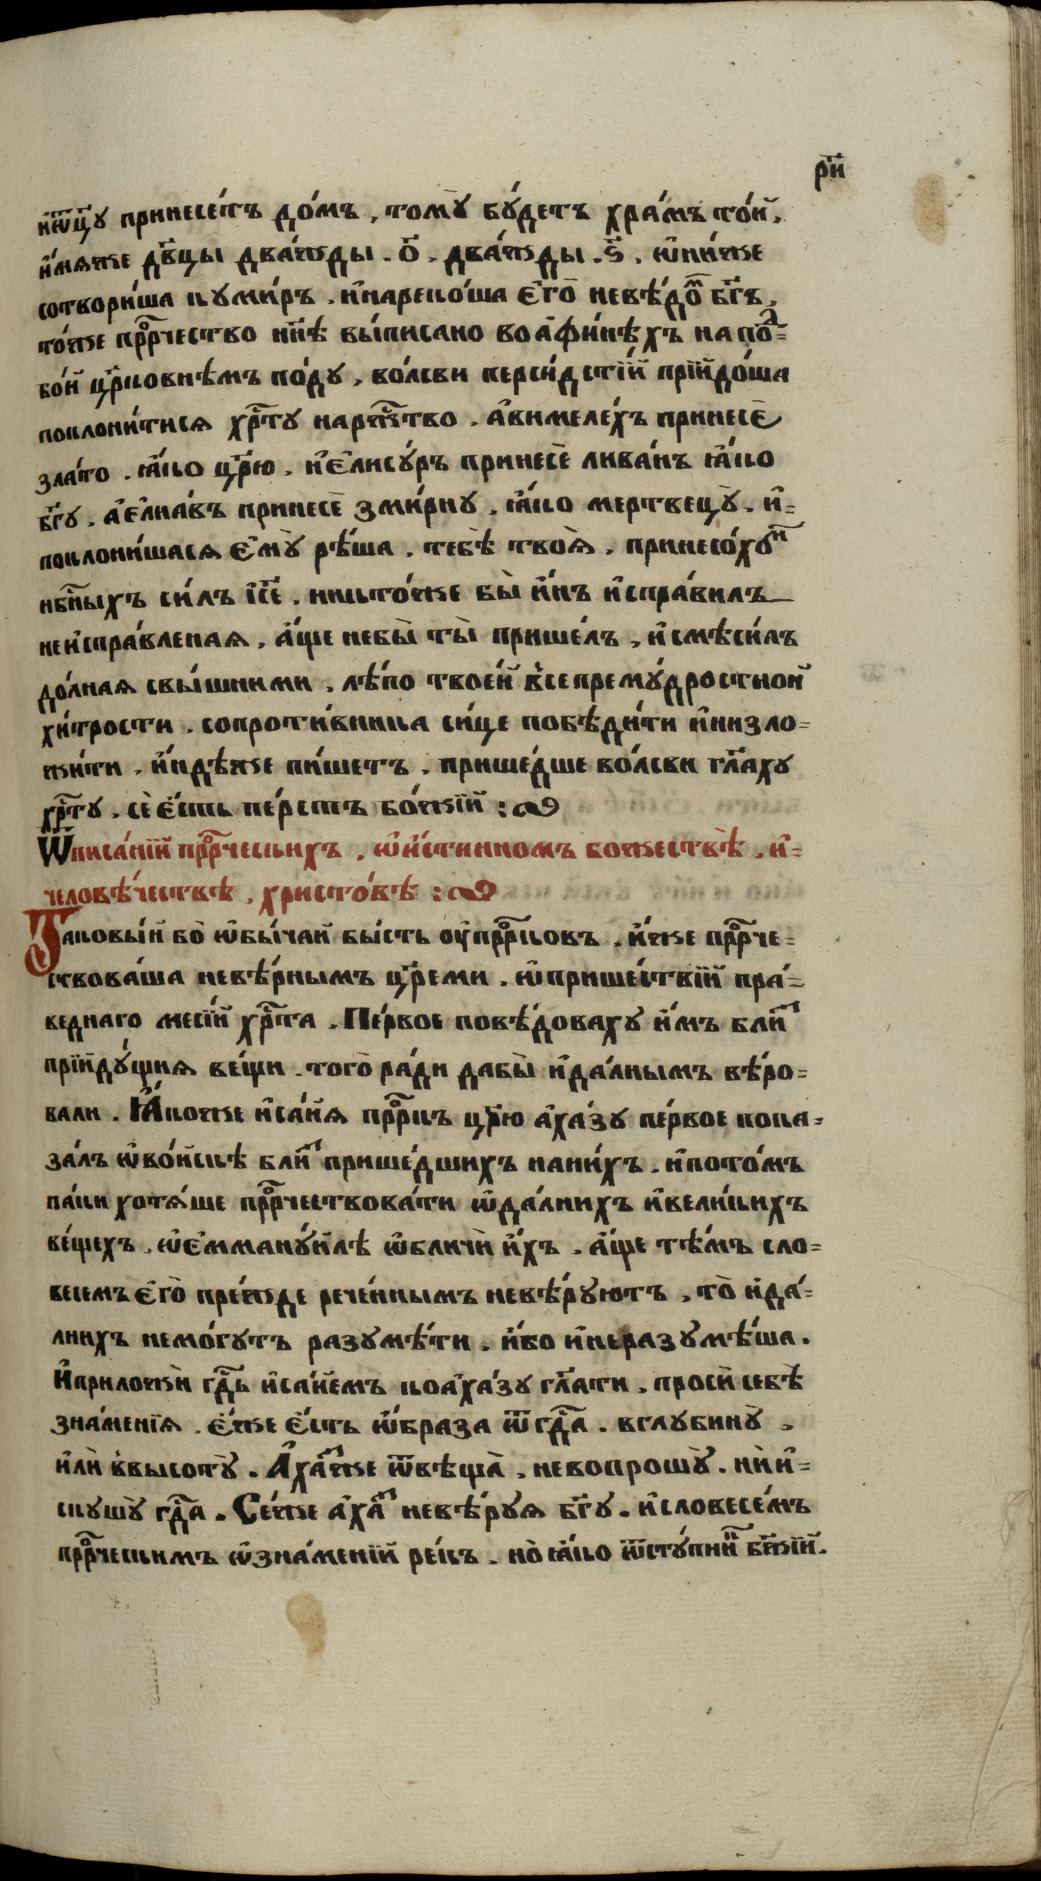 рн҃і
и҆ѿц҃у принесе́тъ до́мъ , томꙋ̀ бу́детъ хра́мъ то́й ,
и҆́мѧже дв҃цы два́жды . о҃ . два́жды . ѕ҃ . ѡ҆ни́же
сотвори́ша кꙋми́ръ . и҆нареко́ша є҆го̀ невѣ́до бг҃ъ ,
то́же прⷪ҇рчество нн҃ѣ вы́писано во а҆фи́нѣхъ на пол=
бо́й цр҃ковнѣмъ по́дꙋ , во́лсви перси́дстїй прїйдо́ша
поклони́тисѧ хрⷭ҇тꙋ нарⷤ҇ство . а҆вимеле́хъ принесѐ
зла́то . ꙗ҆́ко цр҃ю . и҆є҆лисꙋ́ръ принесѐ лива́нъ ꙗ҆́ко
бг҃ꙋ . а҆є҆лиа́въ принесѐ зми́рнꙋ . ꙗ҆́ко мертвецꙋ̀ . и҆=
поклони́шасѧ є҆мꙋ̀ рѣ́ша . тебѣ̀ твоѧ̀ . принесо́хомⷩ
нбⷭ҇ныхъ си́лъ і҆с҃е . никто́же бы̀ и҆́нъ и҆спра́вилъ
неи҆спра́вленая . а҆́ще небы̀ ты̀ прише́лъ , и҆смѣси́лъ
до́лная свы́шними . лѣ́по твое́й всепремꙋ́дростной
хи́трости . сопроти́вника си́це побѣди́ти и҆низло=
жи́ти . и҆́ндѣже пи́шетъ . прише́дше во́лсви гл҃ахꙋ
хрⷭ҇тꙋ . сѐ є҆́сть пе́рстъ бо́жїй :
Ѿписа́нїй прⷪ҇рческихъ . ѡ҆и҆́стинномъ божествѣ̀ . и҆=
человѣ́чествѣ , христо́вѣ :
Таковы́й бо̀ ѡ҆бы́чай бы́сть ᲂу҆прⷪ҇рковъ . и҆́же прⷪ҇рче=
ствова́ша невѣ́рнымъ цр҃еми . ѡ҆прише́ствїй пра́=
веднаго месі́й хрⷭ҇та . Пе́рвое повѣ́довахꙋ и҆́мъ бли́ⷥ
прїйдꙋ́щиѧ ве́щи . того̀ ра́ди дабы̀ и҆да́лнымъ вѣ́ро=
вали . Ꙗ҆́коже и҆са́йѧ прⷪ҇ркъ цр҃ю а҆ха́зꙋ пе́рвое пока=
за́лъ ѡ҆во́йскѣ бли́ⷥ прише́дшихъ нани́хъ . и҆пото́мъ
па́ки хотѧ́ше прⷪ҇рчествова́ти ѡ҆да́лнихъ и҆вели́кихъ
ве́щехъ . ѡ҆є҆ммануи́лѣ ѡ҆бличѝ и҆́хъ . а҆́ще тѣ́мъ сло=
весемъ є҆го̀ пре́жде рече́ннымъ невѣ́рꙋютъ , то̀ и҆да́=
лнихъ немо́гꙋтъ разꙋмѣ́ти . и҆́бо и҆неразꙋмѣ́ша .
И҆приложѝ гдⷭ҇ь и҆са́йемъ коа҆ха́зꙋ гл҃ати . просѝ себѣ̀
зна́менїѧ . є҆́же є҆́сть ѡ҆́браза ѿгдⷭ҇а . вглꙋбинꙋ̀ ,
и҆лѝ ввысотꙋ̀ . А҆ха́ⷥже ѿвѣща̀ . невопрошꙋ̀ . ни̏ и҆=
скꙋшꙋ̀ гдⷭ҇а . Се́же а҆ха́ⷥ невѣ́рꙋѧ бг҃ꙋ . и҆словесе́мъ
прⷪ҇рческимъ ѡ҆зна́менїй ре́къ . но̀ ꙗ҆́ко ѿстꙋ́пникⷩ бж҃їй .